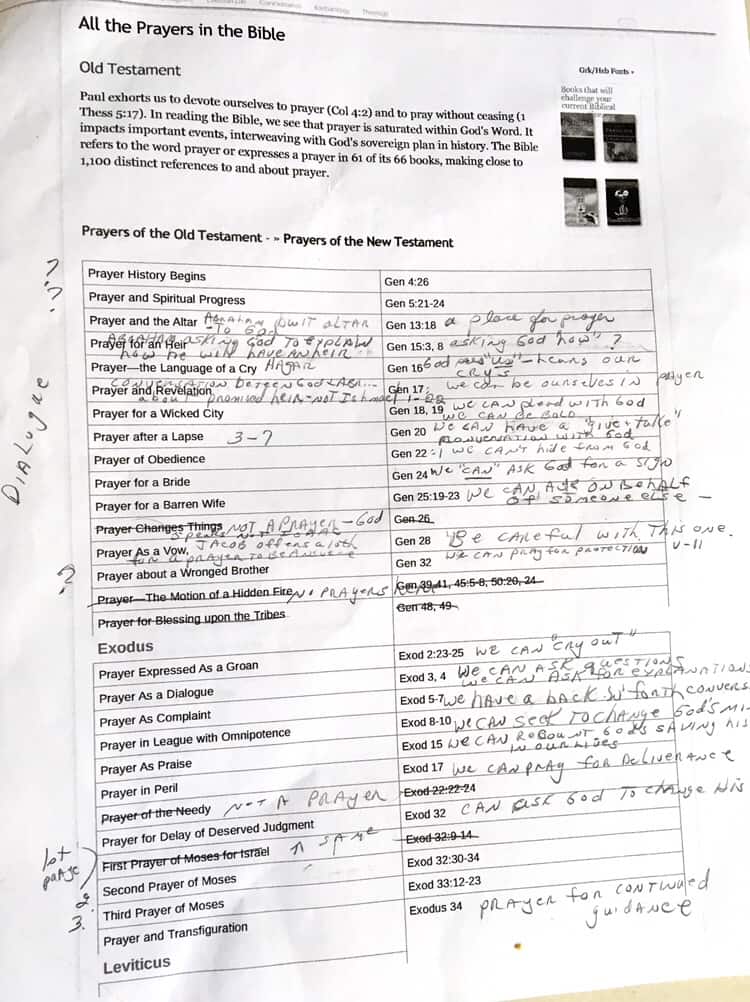 All the Prayers in the Bible
Old Testament
Grk/Heb Fonts
Books that will
challenge your
current Biblical
Paul exhorts us to devote ourselves to prayer (Col 4:2) and to pray without ceasing (1
Thess 5:17). In reading the Bible, we see that prayer is saturated within God's Word. It
impacts important events, interweaving with God's sovereign plan in history. The Bible
refers to the word prayer or expresses a prayer in 61 of its 66 books, making close to
1,100 distinct references to and about prayer.
Prayers of the Old Testament - » Prayers of the New Testament
DIALOGUE
? ?
Prayer History Begins Gen 4:26
Prayer and Spiritual Progress Gen 5:21-24
Prayer and the Altar ABRAHAM ALTAR TO GOD Gen 13:18 a place for prayer
ABRAHAM ASKING GOD TO EXPLAIN
Prayer for an Heir Gen 15:3, 8 asking God "how"?
HOW HE WILL HAVE AN HEIR
Prayer—the Language of a Cry HAGAR Gen 16 God "us" - hears our CRYS
CONVERSATION GOD
Prayer and Revelation Gen 17: we can be ourselves in prayer
about promised heir - NOT Ishmael 1-22
Prayer for a Wicked City Gen 18, 19 WE CAN plead WITH GOD
WE CAN BE BOLD
Prayer after a Lapse 3-7 Gen 20 WE CAN HAVE A "give + take"
CONVERSATION WITH GOD
Prayer of Obedience Gen 22:1 WE CAN'T hide FROM GOD
Prayer for a Bride Gen 24 WE "CAN" ASK GOD FOR A SIGN
Prayer for a Barren Wife Gen 25:19-23 WE CAN ON BEHALF
OF SOMEONE ELSE -
Prayer Changes Things NOT A PRAYER - GOD Gen 26
speaks
Prayer As a Vow, JACOB offers Gen 28 BE CAREFUL WITH THIS ONE.
FOR A PRAYER TO BE
Prayer about a Wronged Brother Gen 32 WE CAN PRAY FOR PROTECTION V-11
?
Prayer—The Motion of a Hidden Fire NO PRAYERS Gen 39-41, 45:5-8, 50:20, 24
Prayer for Blessing upon the Tribes Gen 48, 49
Exodus
Prayer Expressed As a Groan Exod 2:23-25 WE CAN "CRY OUT"
Prayer As a Dialogue Exod 3, 4 WE CAN ASK QUESTIONS
WE CAN ASK FOR EXPLANATIONS
Prayer As Complaint Exod 5-7 WE HAVE A BACK FORTH CONVERS
Prayer in League with Omnipotence Exod 8-10 WE CAN SEEK TO CHANGE GOD'S MI-
Prayer As Praise Exod 15 WE CAN GOD'S SAVING HIS
IN OUR LIVES
Prayer in Peril Exod 17 WE CAN PRAY FOR DELIVERANCE
Prayer of the Needy NOT A PRAYER Exod 22:22-24
Prayer for Delay of Deserved Judgment Exod 32 CAN ASK GOD TO CHANGE HIS
1st
First Prayer of Moses for Israel ↑ SAME Exod 32:9-14
2.
Second Prayer of Moses Exod 32:30-34
3.
Third Prayer of Moses Exod 33:12-23
Prayer and Transfiguration Exodus 34 PRAYER FOR CONTINUED
GUIDANCE
Leviticus